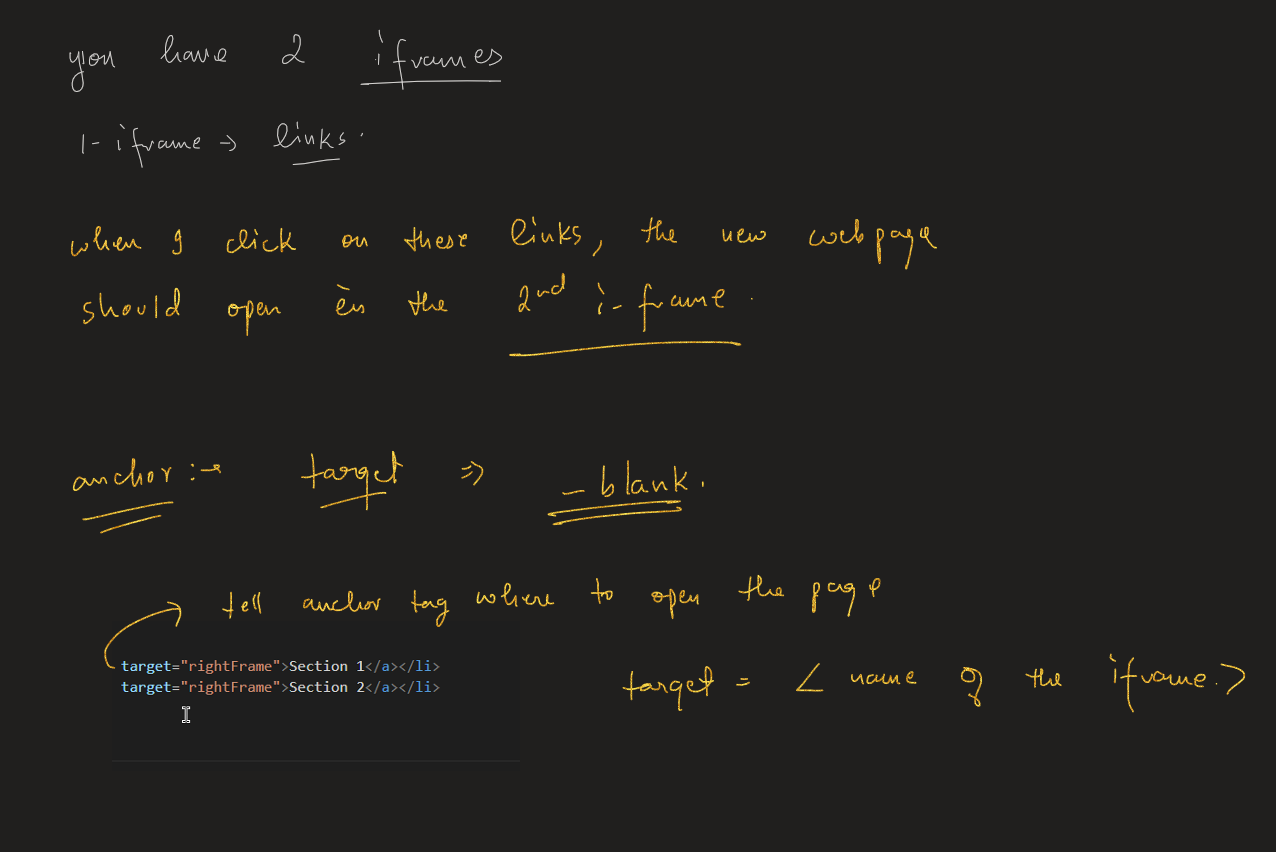 you have 2 iframes
1- iframe → links.
when I click on these links, the new webpage
should open in the 2nd i-frame.
anchor :→ target ⇒ _blank.
tell anchor tag where to open the page
target="rightFrame">Section 1</a></li>
target="rightFrame">Section 2</a></li>
target = < name of the iframe.>